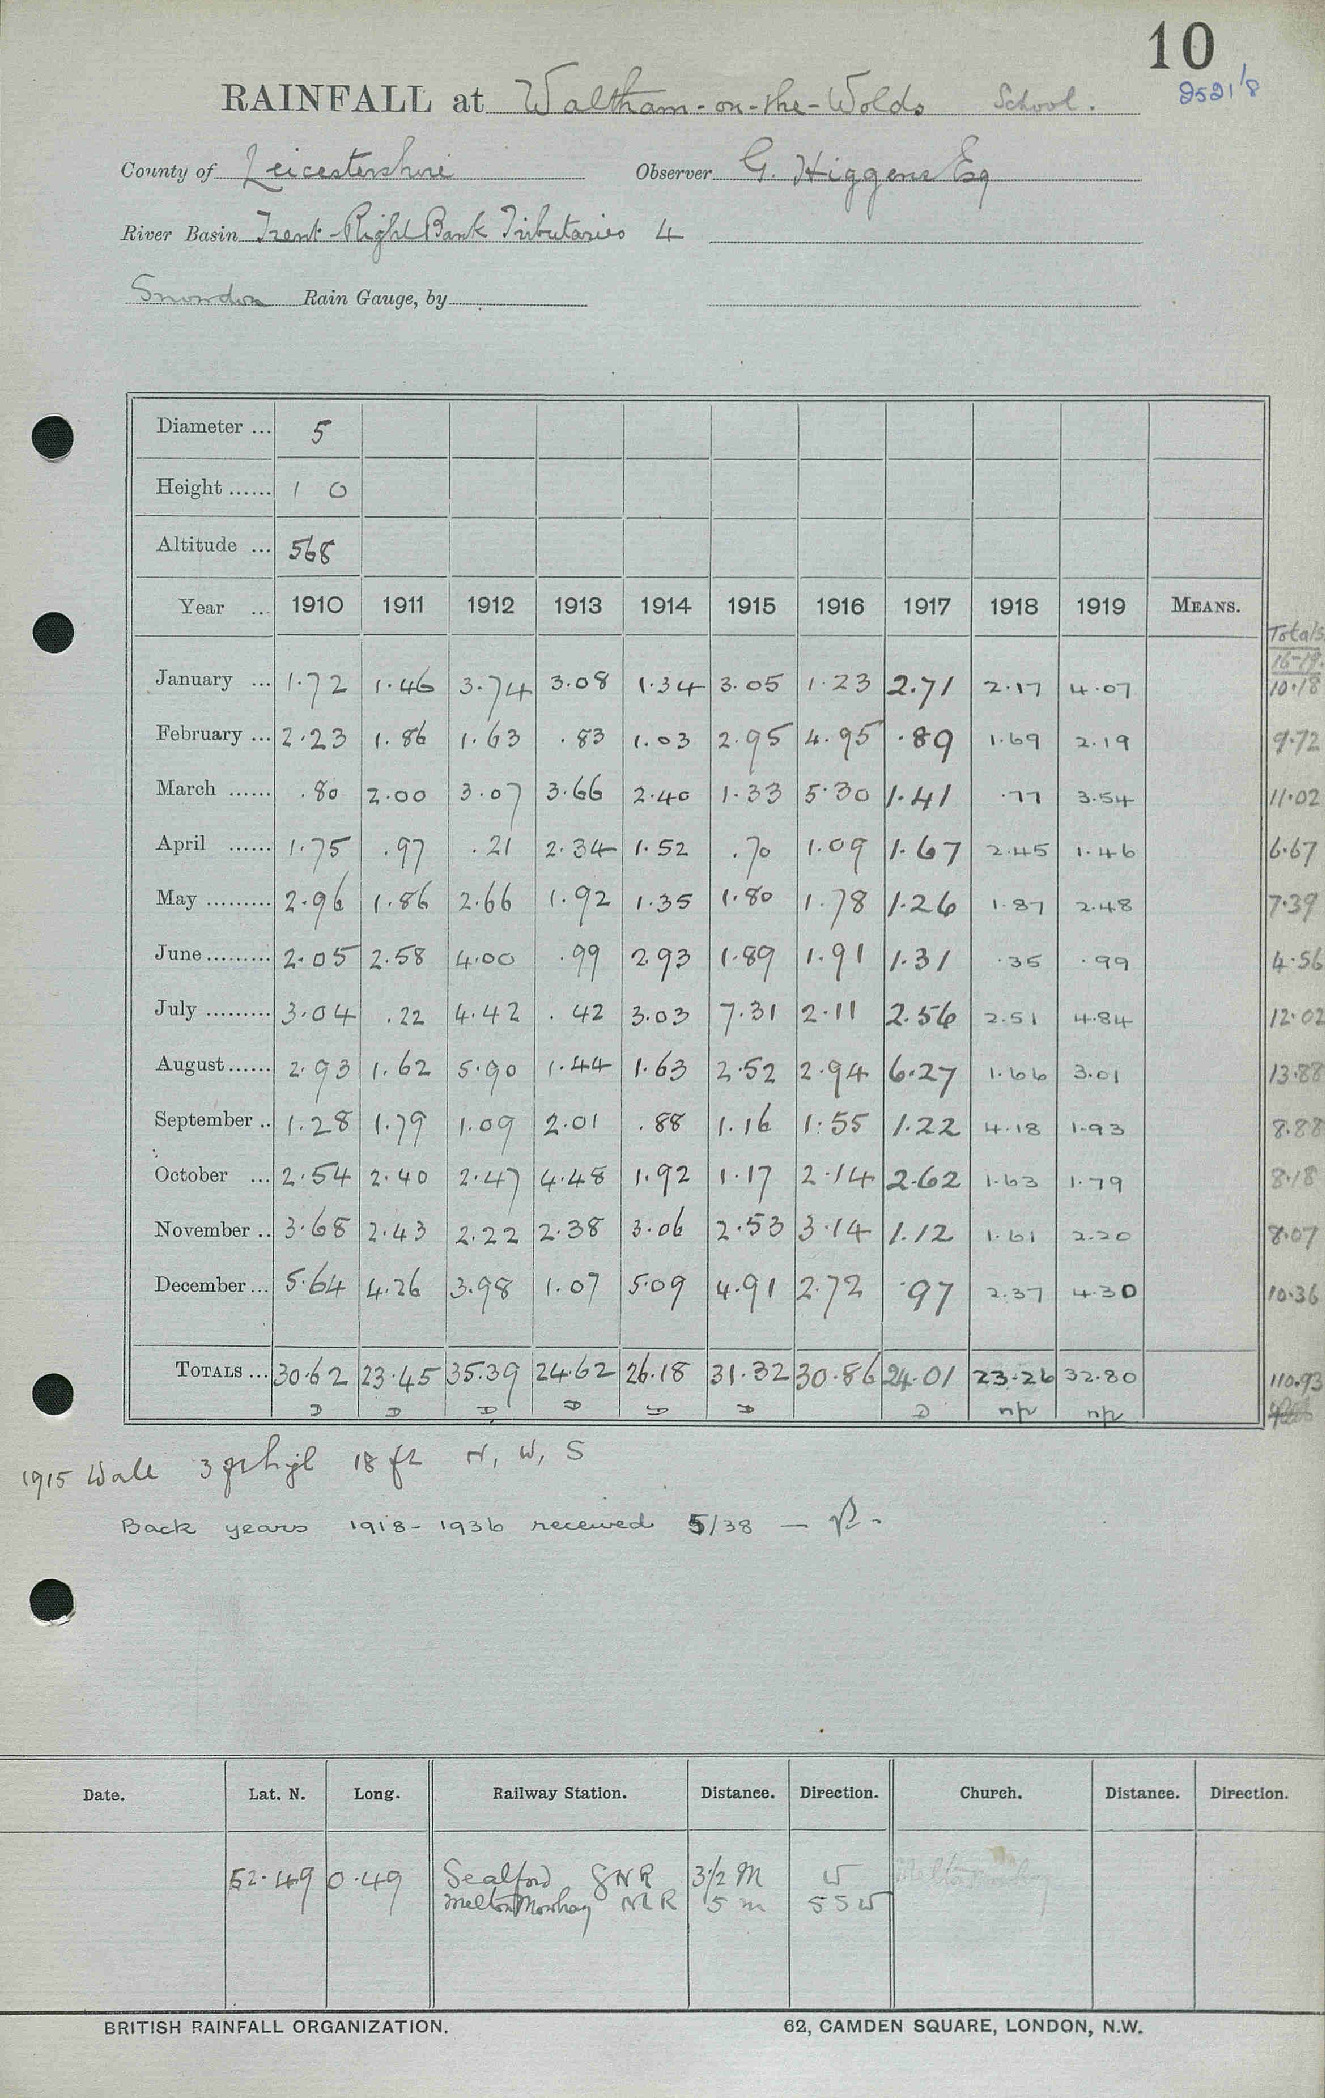 10
2521/8
RAINFALL at Waltham-on-the-Wolds School.
County of Leicestershire Observer G. Higgens Esq
River Basin Trent-Right Bank Tributaries 4
Snowdon Rain Gauge, by
Diameter ... 5
Height ...... 1 0
Altitude ... 568
Year ... 1910 1911 1912 1913 1914 1915 1916 1917 1918 1919 MEANS.
Totals
16-19.
January ... 1.72 1.46 3.74 3.08 1.34 3.05 1.23 2.71 2.17 4.07 10.18
February ... 2.23 1.86 1.63 .83 1.03 2.95 4.95 .89 1.69 2.19 9.72
March ...... .80 2.00 3.07 3.66 2.40 1.33 5.30 1.41 .77 3.54 11.02
April ...... 1.75 .97 .21 2.34 1.52 .70 1.09 1.67 2.45 1.46 6.67
May ......... 2.96 1.86 2.66 1.92 1.35 1.80 1.78 1.26 1.87 2.48 7.39
June ......... 2.05 2.58 4.00 .99 2.93 1.89 1.91 1.31 .35 .99 4.56
July ......... 3.04 .22 4.42 .42 3.03 7.31 2.11 2.56 2.51 4.84 12.02
August ...... 2.93 1.62 5.90 1.44 1.63 2.52 2.94 6.27 1.66 3.01 13.88
September .. 1.28 1.79 1.09 2.01 .88 1.16 1.55 1.22 4.18 1.93 8.88
October ... 2.54 2.40 2.47 4.48 1.92 1.17 2.14 2.62 1.63 1.79 8.18
November .. 3.68 2.43 2.22 2.38 3.06 2.53 3.14 1.12 1.61 2.20 8.07
December ... 5.64 4.26 3.98 1.07 5.09 4.91 2.72 .97 2.37 4.30 10.36
TOTALS ... 30.62 23.45 35.39 24.62 26.18 31.32 30.86 24.01 23.26 32.80 110.93
D D D D D D D np np
1915 Wall 3 ft high 18 ft N, W, S
Back years 1918-1936 received 5/38 —
Date. Lat. N. Long. Railway Station. Distance. Direction. Church. Distance. Direction.
52.49 0.49 Scalford GNR 3½ M W
Melton Mowbray MR 5 m SSW
BRITISH RAINFALL ORGANIZATION. 62, CAMDEN SQUARE, LONDON, N.W.